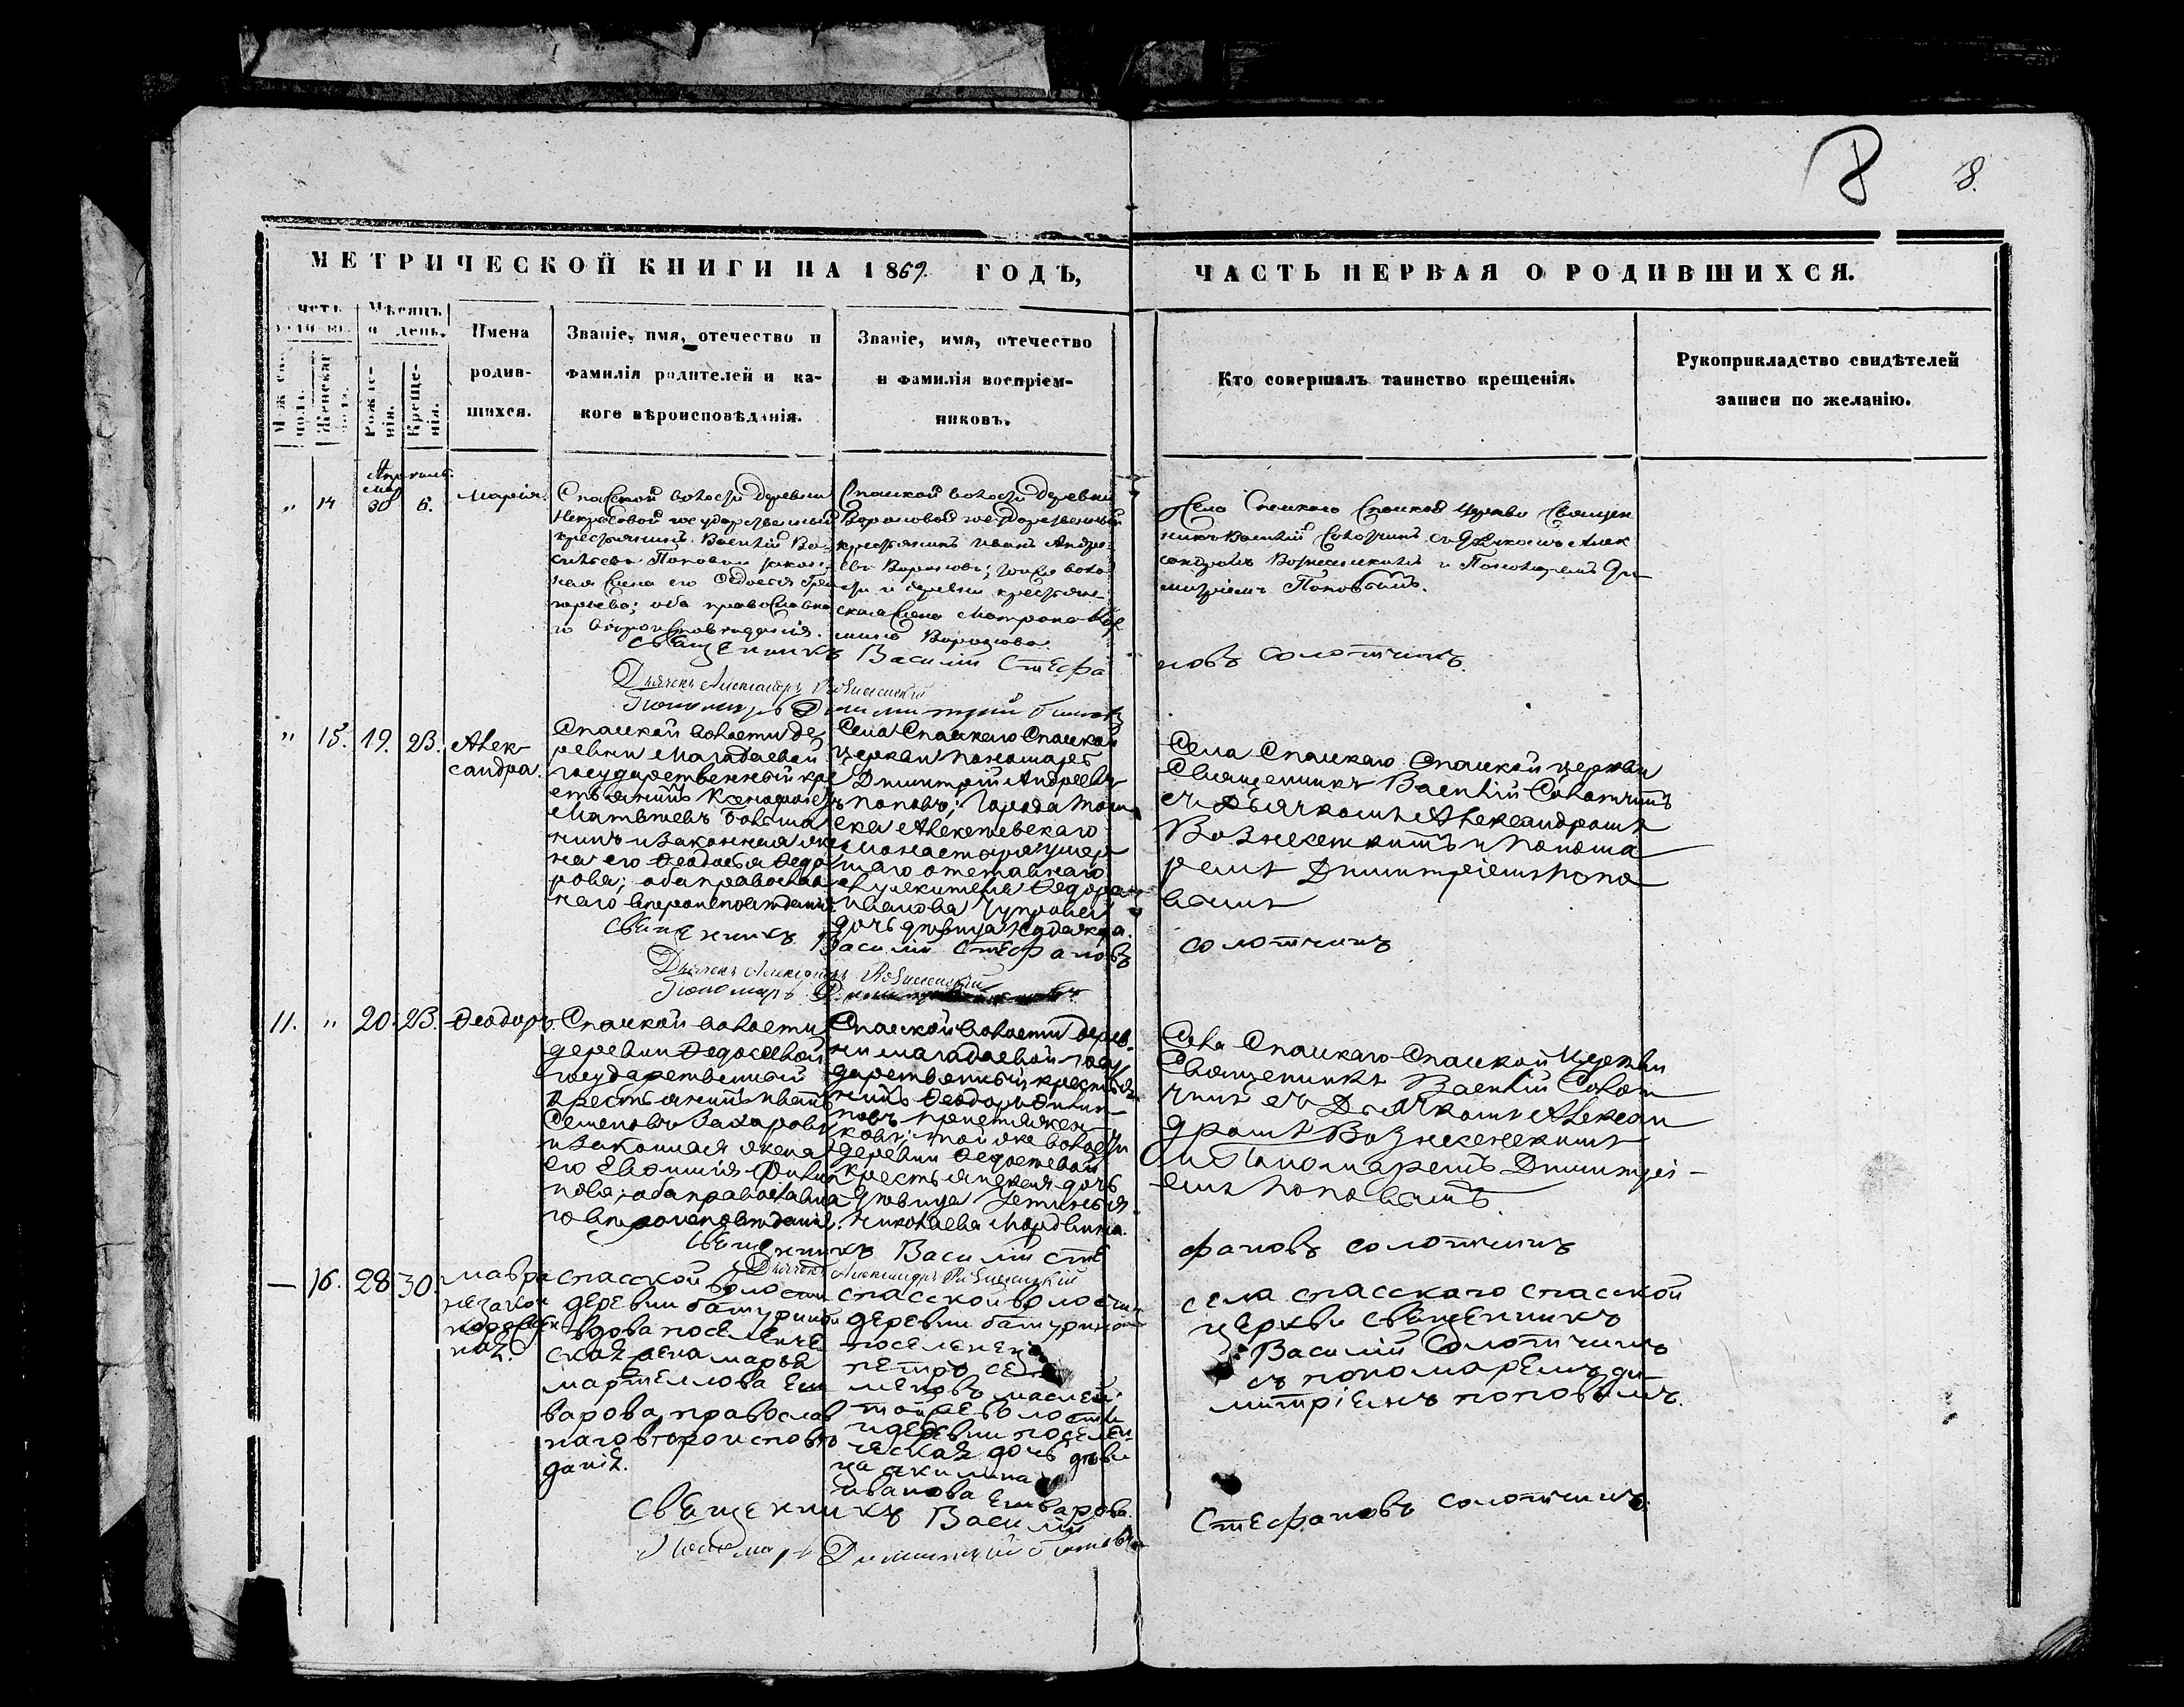 8 8.
МЕТРИЧЕСКОЙ КНИГИ НА 1869. ГОДЪ,
ЧАСТЬ ПЕРВАЯ О РОДИВШИХСЯ.
Мѣсяцъ
и день.
Рожде-
нія.
Креще-
нія.
Имена
родив-
шихся.
Званіе, имя, отечество и
фамилія родителей и ка-
кого вѣроисповѣданія.
Званіе, имя, отечество
и фамилія воспріем-
никовъ.
Кто совершалъ таинство крещенія.
Рукоприкладство свидѣтелей
записи по желанію.
„ 14 30 6. Марія.
Спасской волости деревни
Некрасовой государственный
крестьянинъ Василій Ва-
сильевъ Поповъ и закон-
ная жена его Федосья Гри
горьева; оба православна
го вѣроисповѣданія.
Спасской волости деревни
Вороновой государственный
крестьянинъ Иванъ Андре-
евъ
и деревни крестьян-
ская жена Матрона
Села Спаскаго Спаской церкви Священ
никъ Василій Солотчинъ съ Дьячкомъ Алек
сандромъ Вознесенскимъ и Пономаремъ Ди-
митріемъ Поповымъ.
священникъ Василій Стефа
новъ солотчинъ.
Дьячекъ Александръ Вознесенскій
Пономарь Димитрій Поповъ
„ 15. 19. 23. Алек-
сандра.
Спаской волости де
ревни Магадаевой
государственный кре
стьянинъ Ксенофонтъ
Матвѣевъ
и законная же
на его Феодосья Федо
рова; оба православ
наго вѣроисповѣданія
Села Спаскаго Спаской
церкви пономарь
Димитрій Андреевъ
Поповъ; города Том
ска Алексѣевскаго
Монастыря умер
шаго отставнаго
Федора
Иванова
дочь дѣвица Надежда.
Села Спаскаго Спаской церкви
Священникъ Василій Солотчинъ
съ Дьячкомъ Александромъ
Вознесенскимъ и понома
ремъ Димитріемъ Попо
вымъ
священникъ Василій Стефановъ
солотчинъ
Дьячекъ Александръ Вознесенскій
Пономарь
11. „ 20. 23. Феодоръ.
Спаской волости
деревни Федосеевой
государственный
крестьянинъ Иванъ
Семеновъ Захаровъ
и законная жена
его Евфимія Филип
пова; оба православна
го вѣроисповѣданія.
Спаской волости дерев-
ни Магадаевой госу
дарственный крестья
нинъ Феодоръ Филип-
повъ
той же волости
деревни Федосеевой
крестьянская дочь
дѣвица Устинья
Николаева Мордвина.
Села Спаскаго Спаской Церкви
Священникъ Василій Солот
чинъ съ Дьячкомъ Алексан
дромъ Вознесенскимъ
и Пономаремъ Димитрі-
емъ Поповымъ.
священникъ Василій сте
фановъ солотчинъ
Дьячекъ Александръ Вознесенскій
— 16. 28 30. мавра
незакон
норожден
ная.
спасской волости
деревни батуриной
вдова поселенче
ская жена марфа
варова, православ
наго вѣроисповѣ
данія.
спасской волости
деревни батуриной
поселенецъ
петръ се
меновъ
той же волости
и деревни поселен
ческая дочь дѣви
ца акилина
иванова
села спасскаго спасской
церкви священникъ
Василій Солотчинъ
съ пономаремъ ди
митріемъ поповымъ.
священникъ Василій
Стефановъ солотчинъ.
Пономарь Димитрій Поповъ